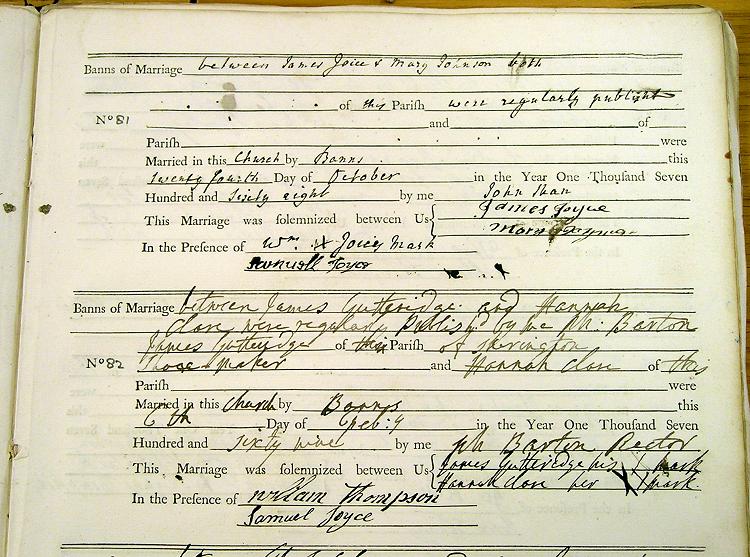 Banns of Marriage between James Joice & Mary Johnson both
of this Parish were regularly publisht
No 81 and of
Parish were
Married in this Church by Banns this
twenty fourth Day of October in the Year One Thousand Seven
Hundred and Sixty eight by me John
This Marriage was solemnized between Us James Joyce
Mary
In the Presence of Wm X Joices Mark
Samuell Joyce
Banns of Marriage between James Gutteridge and Hannah
Clare were regularly Published by me Barton
James Gutteridge of this Parish of Sherington
No 82 maker and Hannah Clare of this
Parish were
Married in this Church by Banns this
6th Day of Feb: y in the Year One Thousand Seven
Hundred and sixty nine by me Barton Rector
This Marriage was solemnized between Us James Gutteridge his X mark
Hannah Clare her X mark
In the Presence of William Thompson
Samuel Joyce